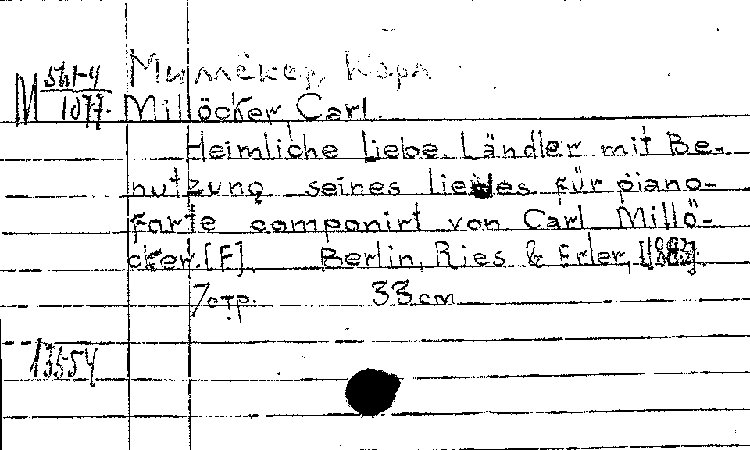 Миллёкер, Карл
M 561-4/1077.
Millöcker, Carl.
Heimliche Liebe. Ländler mit Be-
nutzung seines liedes für piano-
forte componirt von Carl Millö-
cker. [F]. Berlin, Ries & Erler,
7 стр. 33 cm
13554